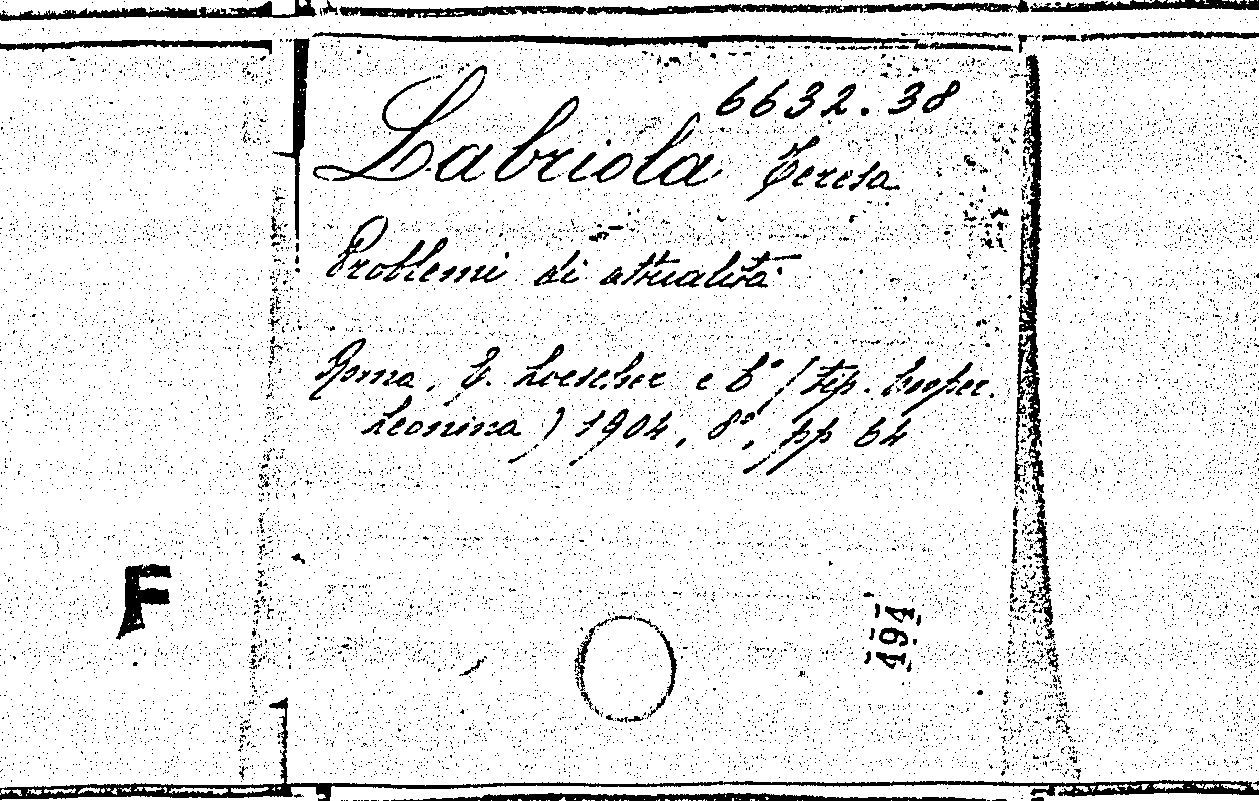 6632.38
Labriola Teresa
Problemi di attualità
Roma, E. Loescher e Cº (tip. Cooper.
Leonina) 1904, 8º, pp 64
F
494